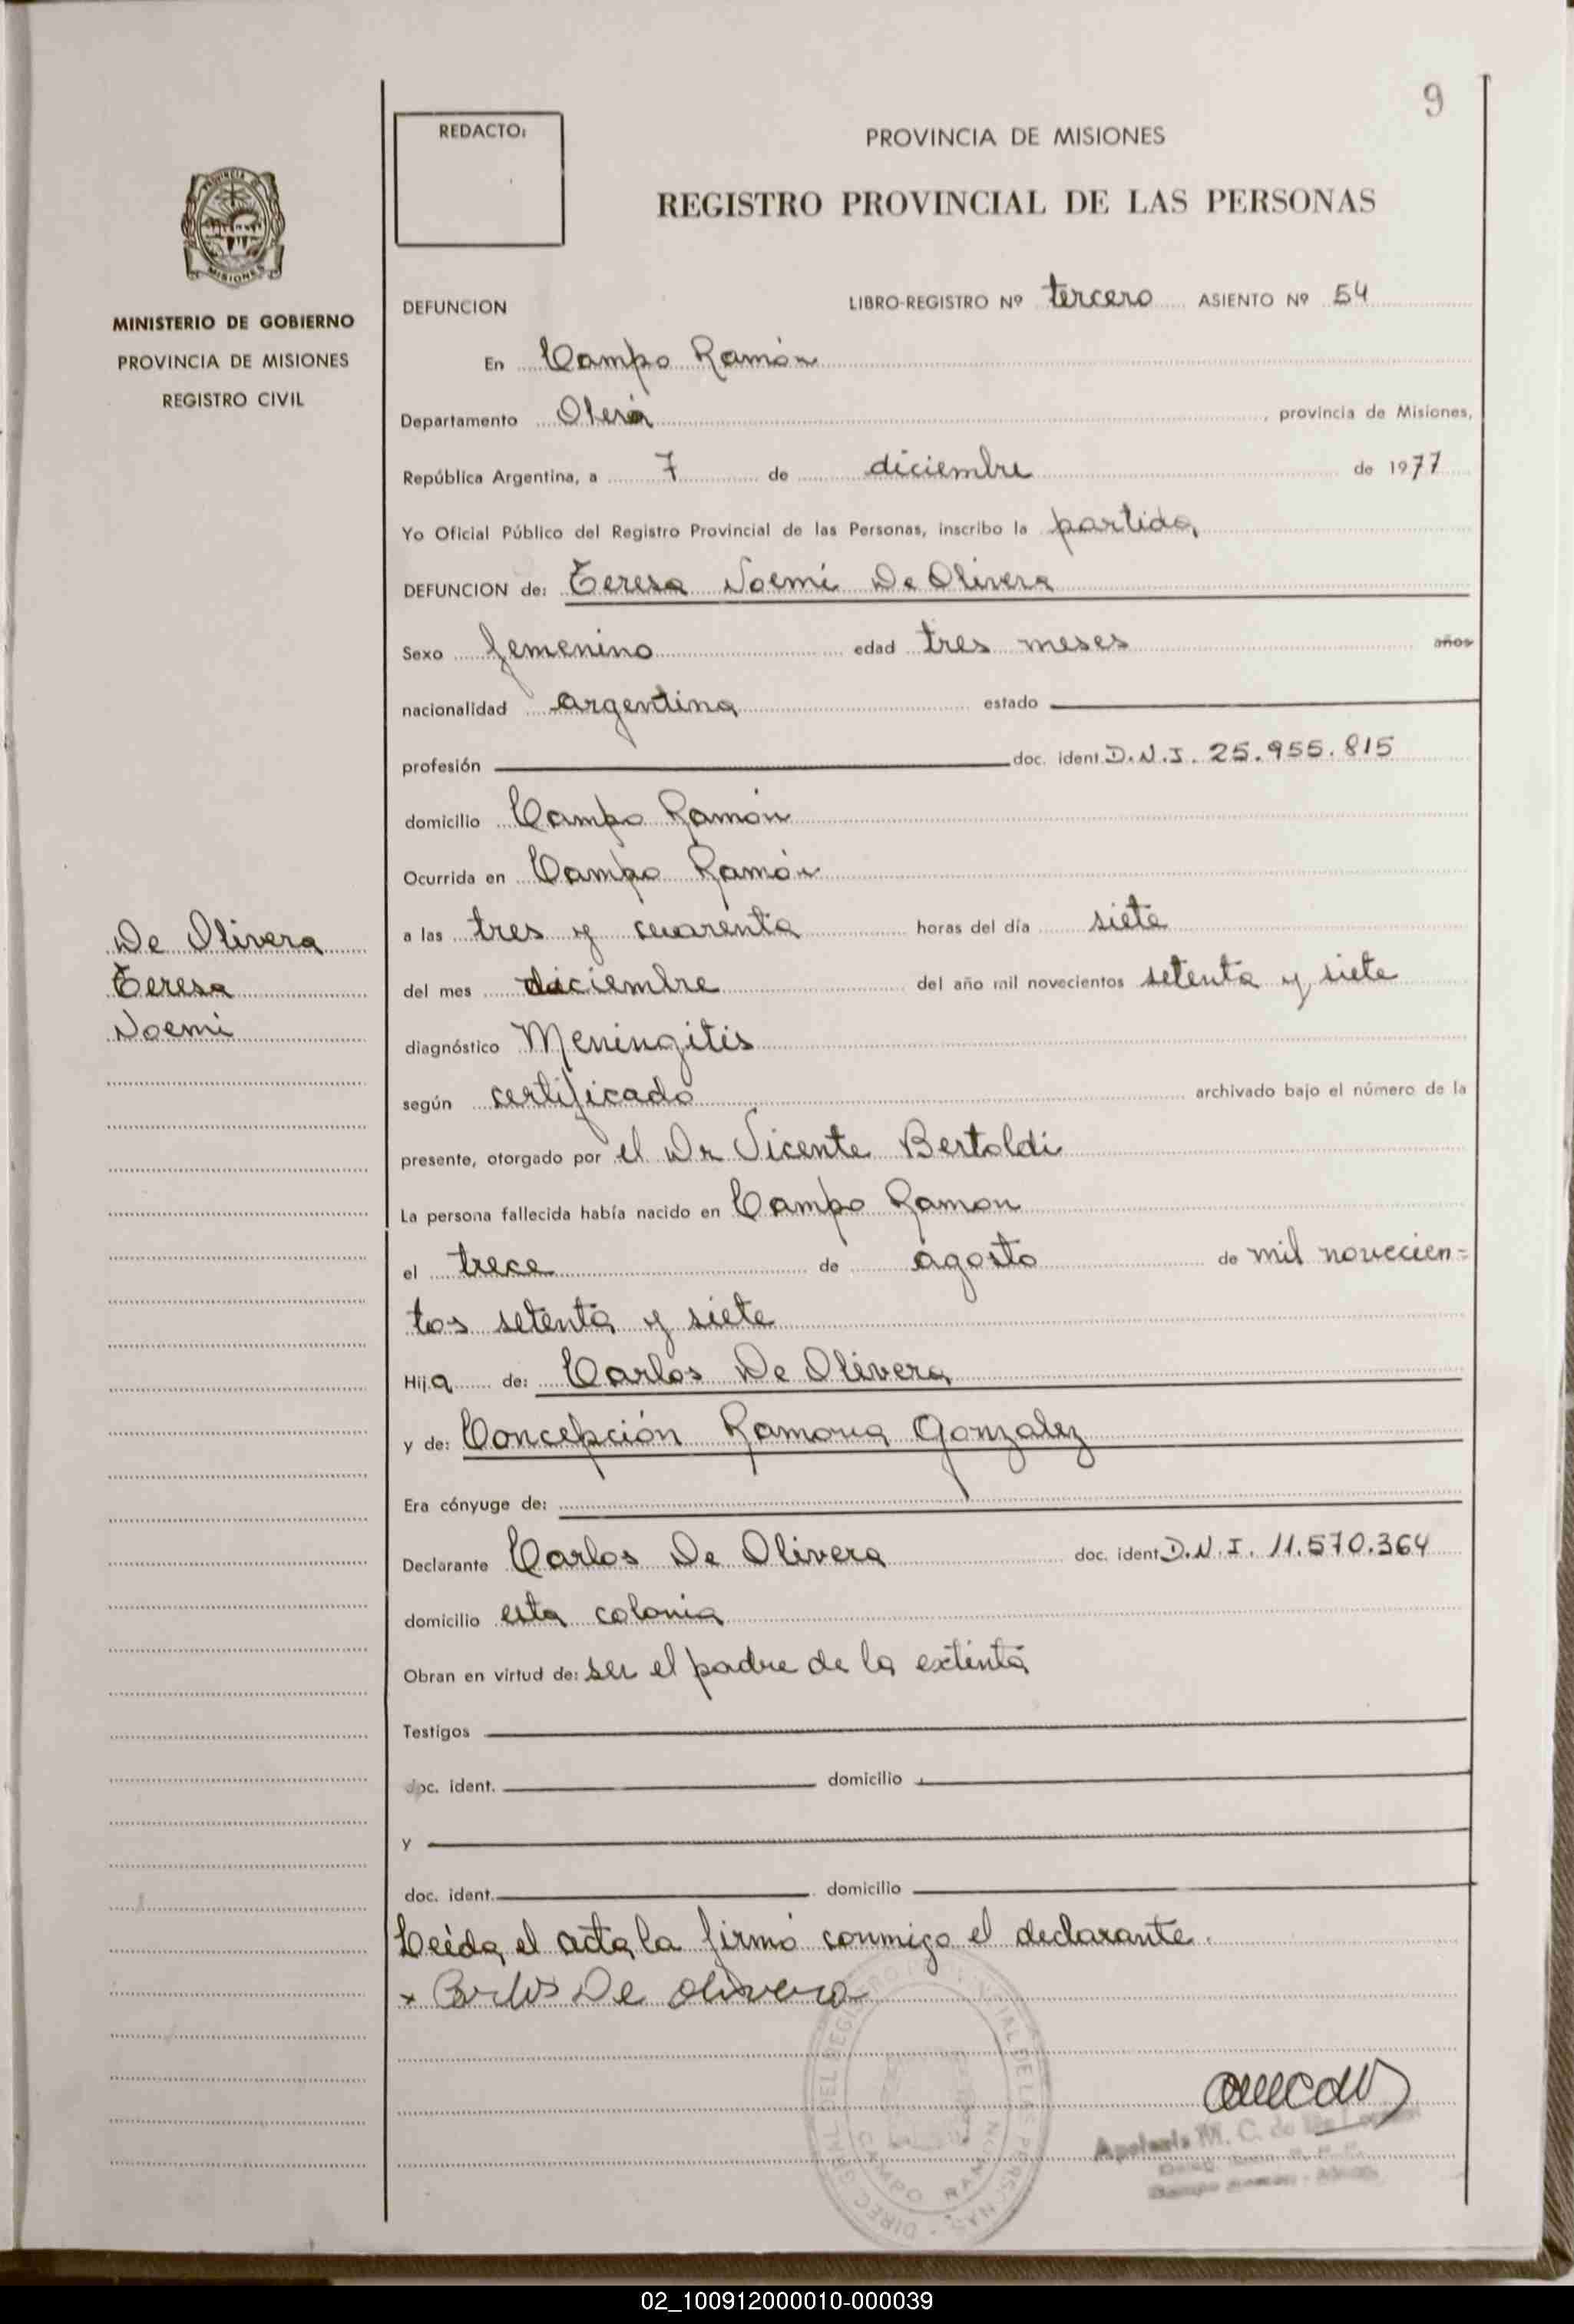 9
REDACTO:
PROVINCIA DE MISIONES
REGISTRO PROVINCIAL DE LAS PERSONAS
MINISTERIO DE GOBIERNO
PROVINCIA DE MISIONES
REGISTRO CIVIL
DEFUNCION LIBRO-REGISTRO Nº tercero ASIENTO Nº 54
En Campo Ramón
Departamento Oberá, provincia de Misiones,
República Argentina, a 7 de diciembre de 1977
Yo Oficial Público del Registro Provincial de las Personas, inscribo la partida
DEFUNCION de: Teresa Noemi De Olivera
Sexo femenino edad tres meses años
nacionalidad argentina estado
profesión doc. ident. D.N.I. 25.955.815
domicilio Campo Ramón
Ocurrida en Campo Ramón
De Olivera
Teresa
Noemi
a las tres y cuarenta horas del día siete
del mes diciembre del año mil novecientos setenta y siete
diagnóstico Meningitis
según certificado archivado bajo el número de la
presente, otorgado por el Dr Vicente Bertoldi
La persona fallecida había nacido en Campo Ramon
el trece de agosto de mil novecien=
tos setenta y siete
Hija de: Carlos De Olivera
y de: Concepción Ramona Gonzalez
Era cónyuge de:
Declarante Carlos De Olivera doc. ident. D.N.I. 11.570.364
domicilio esta colonia
Obran en virtud de: ser el padre de la extinta
Testigos
doc. ident. domicilio
y
doc. ident. domicilio
Leída el acta la firmó conmigo el declarante.
x Carlos De Olivera
DIREC. GRAL. DEL REGISTRO PROVINCIAL DE LAS PERSONAS
CAMPO RAMON
M. C. de
02_100912000010-000039